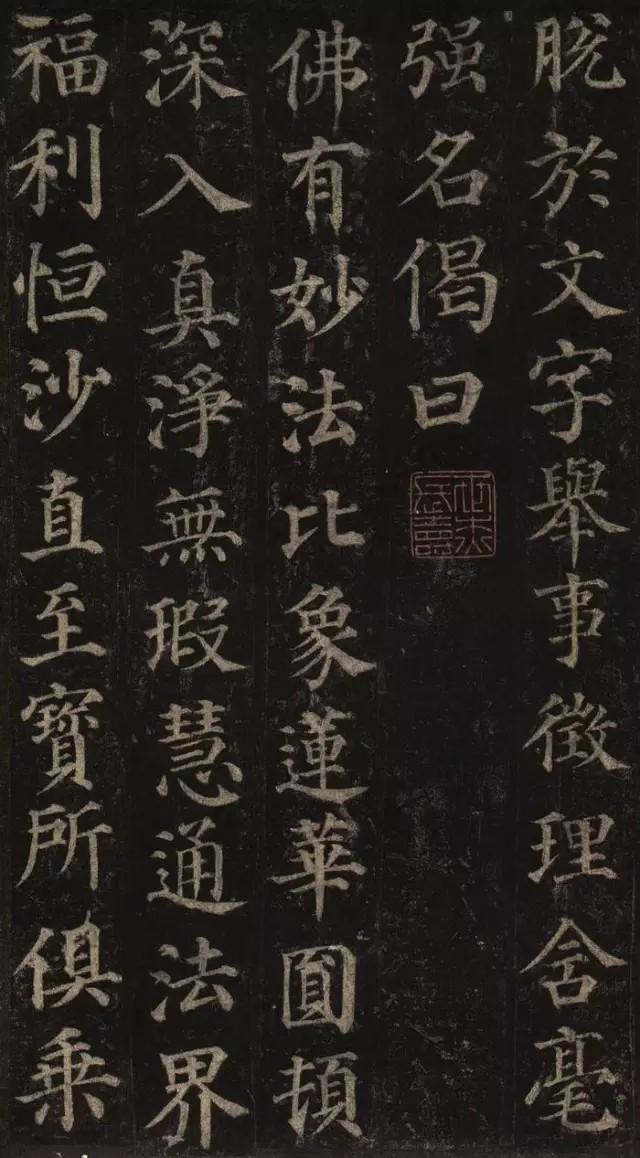 脫於文字舉事徵理含毫
强名偈曰
佛有妙法比象蓮華圎頓
深入真淨無瑕慧通法界
福利恒沙直至寶所俱乗